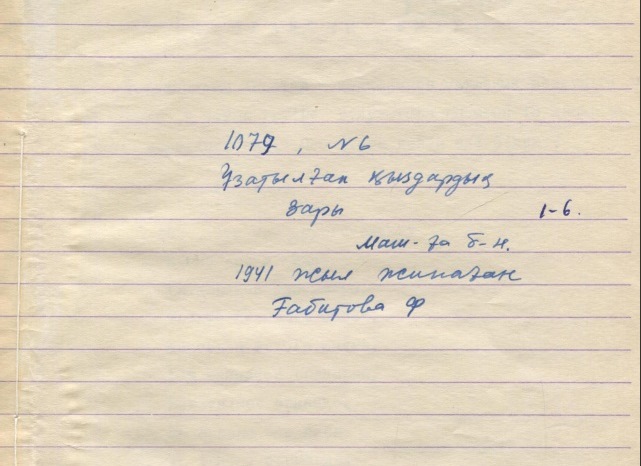 1079, №6
Ұзатылған қыздардың
зары 1-6.
Маш-ға б-н.
1941 жыл жинаған
Ғабитова Ф